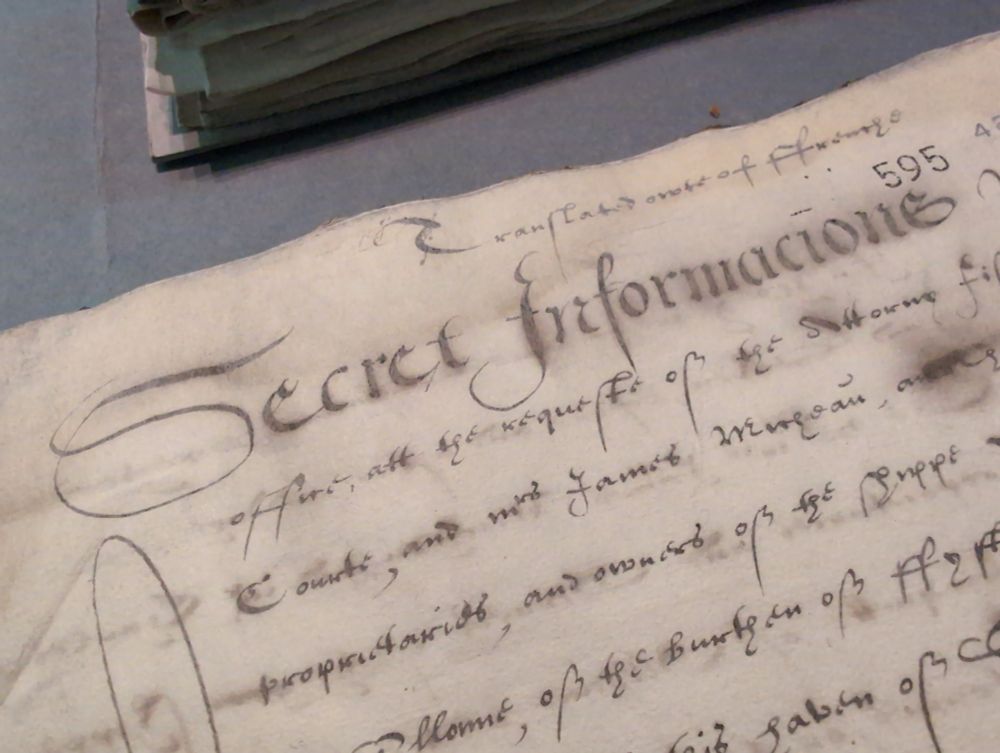 Translated owte of ffrenche
595
Secret Informacions
office, att the requeste of the Attorny
Courte, and mrs James
proprietaries, and owners of the shippe
of the burthen of
haven of